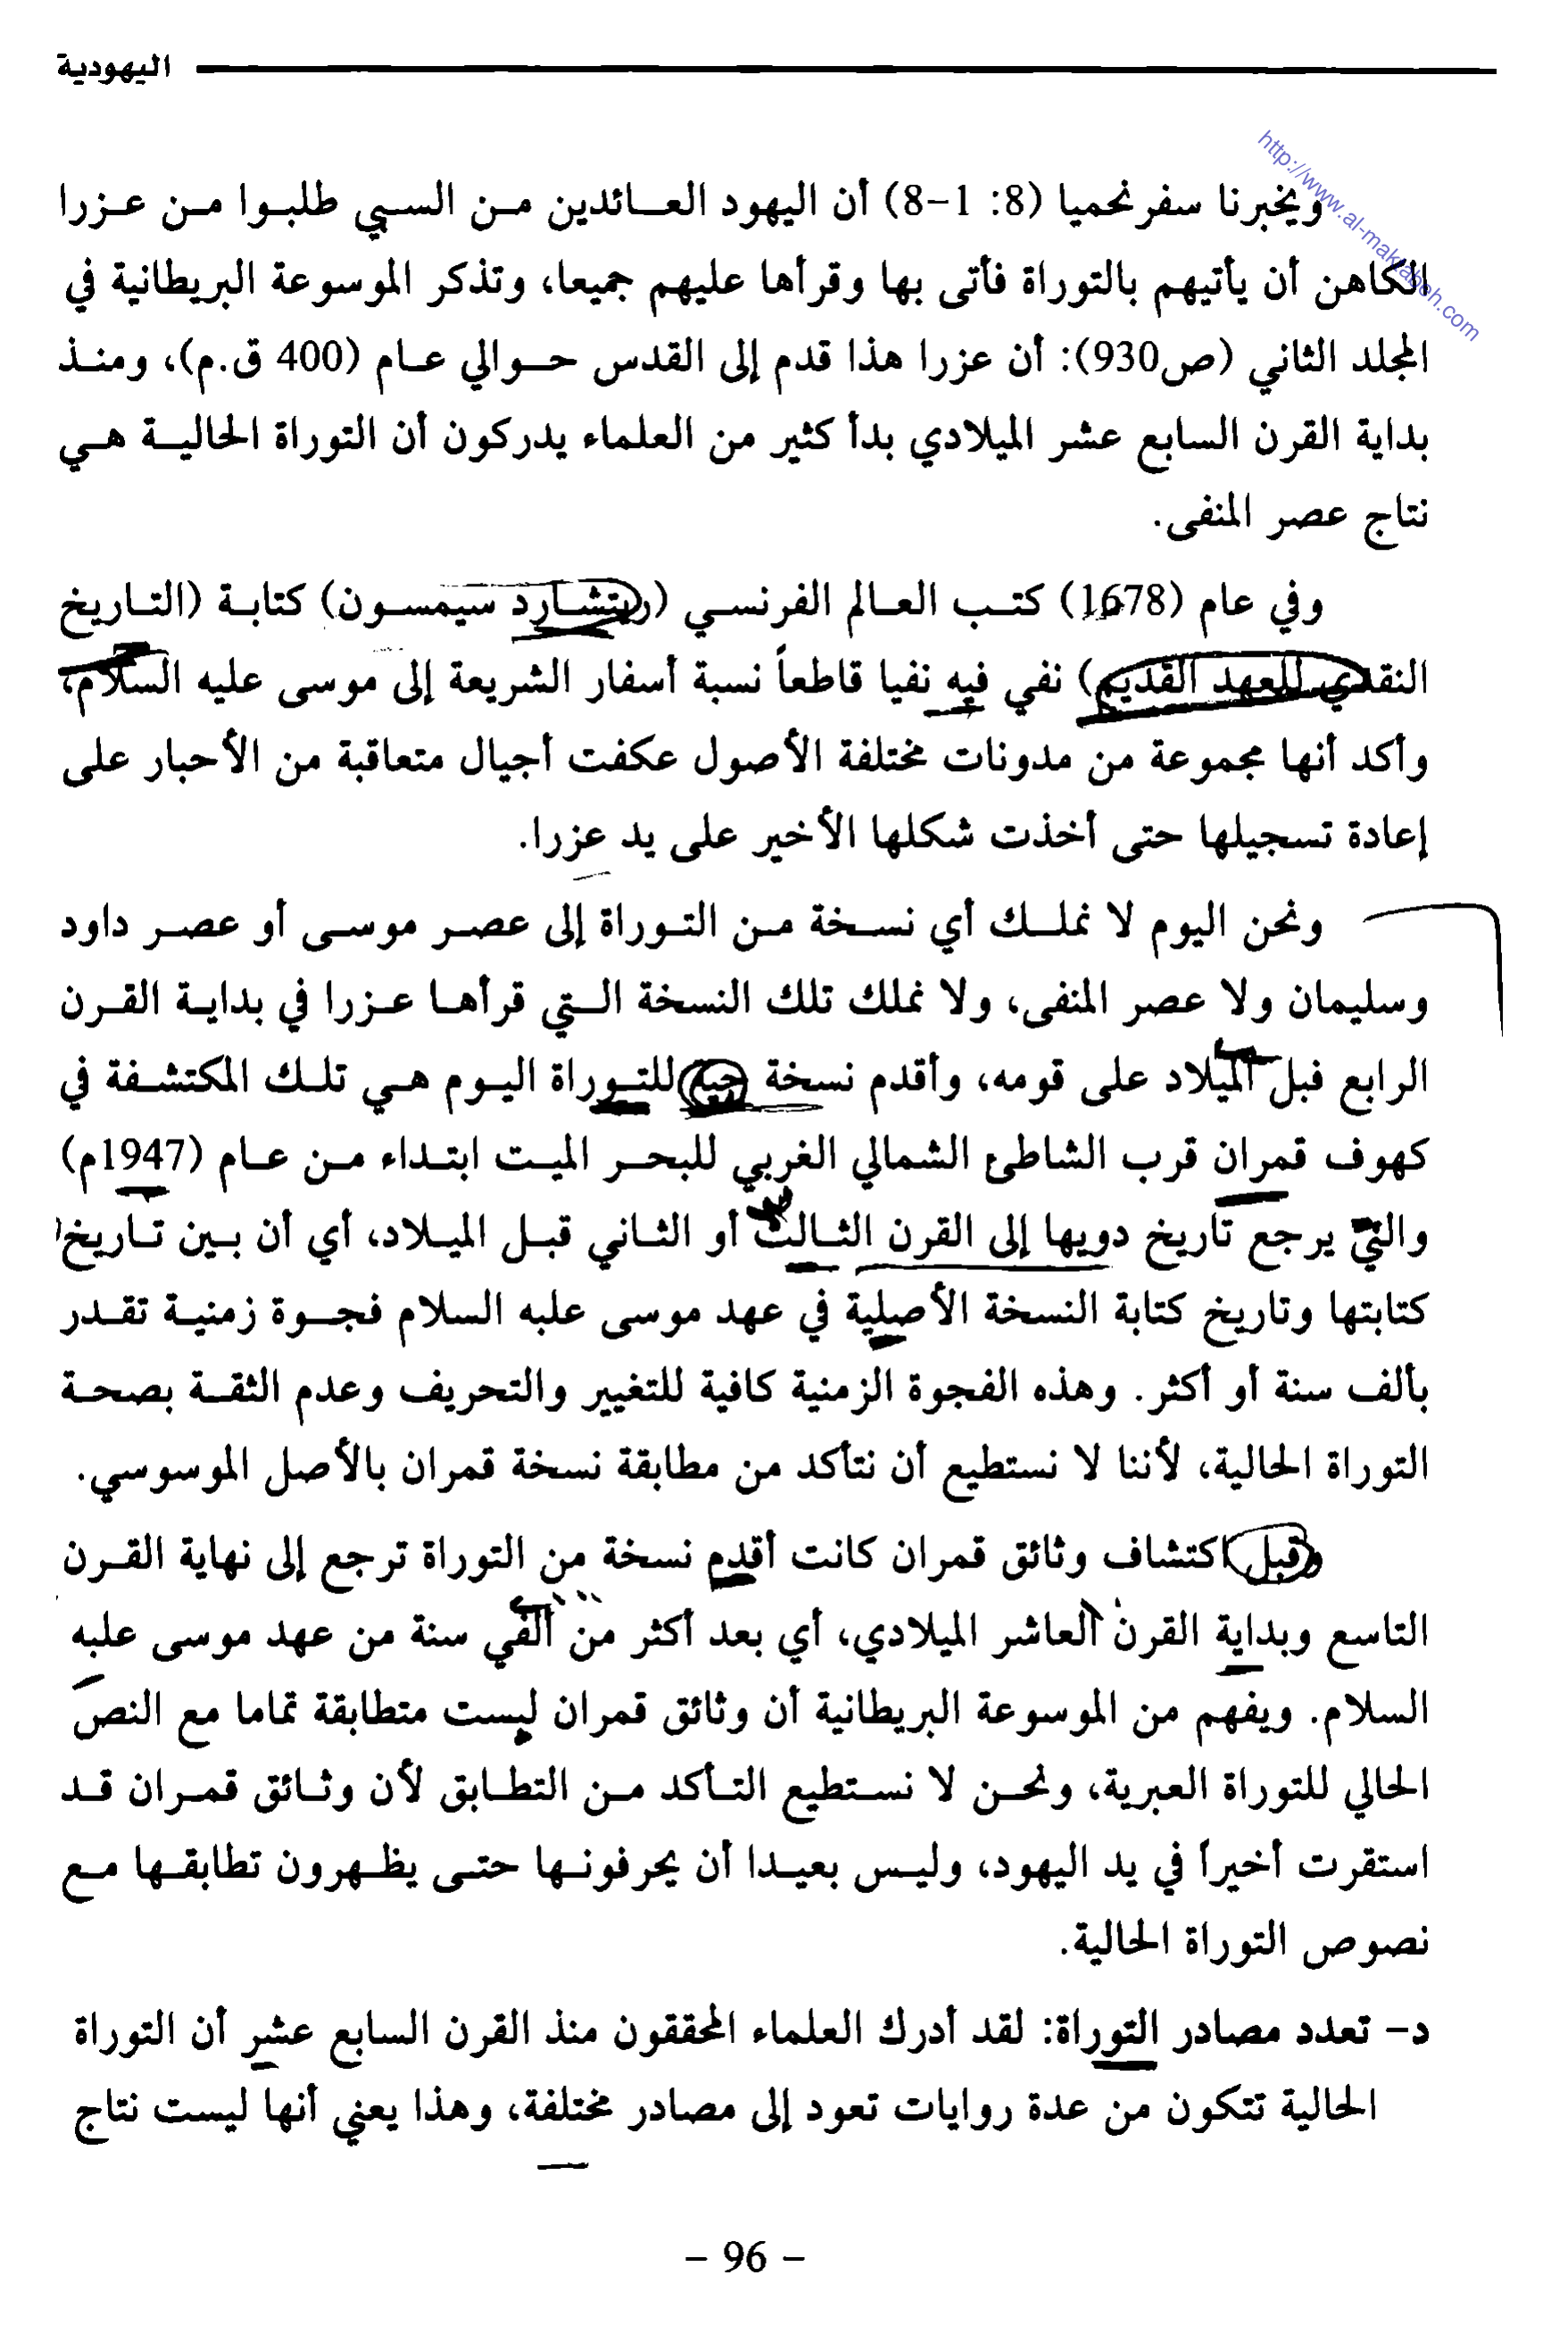 اليهودية
http://www.al-maktabeh.com
ويخبرنا سفرنحميا (8: 1-8) أن اليهود العائدين من السبي طلبوا من عزرا
الكاهن أن يأتيهم بالتوراة فأتى بها وقرأها عليهم جميعا، وتذكر الموسوعة البريطانية في
المجلد الثاني (ص930): أن عزرا هذا قدم إلى القدس حوالي عام (400 ق.م)، ومنذ
بداية القرن السابع عشر الميلادي بدأ كثير من العلماء يدركون أن التوراة الحالية هي
نتاج عصر المنفى.
وفي عام (1678) كتب العالم الفرنسي (ريتشارد سيمسون) كتابة (التاريخ
النقدي للعهد القديم) نفي فيه نفيا قاطعاً نسبة أسفار الشريعة إلى موسى عليه السلام،
وأكد أنها مجموعة من مدونات مختلفة الأصول عكفت أجيال متعاقبة من الأحبار على
إعادة تسجيلها حتى أخذت شكلها الأخير على يد عزرا.
ونحن اليوم لا نملك أي نسخة من التوراة إلى عصر موسى أو عصر داود
وسليمان ولا عصر المنفى، ولا نملك تلك النسخة التي قرأها عزرا في بداية القرن
الرابع فبل الميلاد على قومه، وأقدم نسخة للتوراة اليوم هي تلك المكتشفة في
كهوف قمران قرب الشاطئ الشمالي الغربي للبحر الميت ابتداء من عام (1947م)
والتي يرجع تاريخ دويها إلى القرن الثالث أو الثاني قبل الميلاد، أي أن بين تاريخ
كتابتها وتاريخ كتابة النسخة الأصلية في عهد موسى علبه السلام فجوة زمنية تقدر
بألف سنة أو أكثر. وهذه الفجوة الزمنية كافية للتغيير والتحريف وعدم الثقة بصحة
التوراة الحالية، لأننا لا نستطيع أن نتأكد من مطابقة نسخة قمران بالأصل الموسوسي.
وقبل اكتشاف وثائق قمران كانت أقدم نسخة من التوراة ترجع إلى نهاية القرن
التاسع وبداية القرن العاشر الميلادي، أي بعد أكثر من ألفي سنة من عهد موسى علبه
السلام. ويفهم من الموسوعة البريطانية أن وثائق قمران ليست متطابقة تماما مع النص
الحالي للتوراة العبرية، ونحن لا نستطيع التأكد من التطابق لأن وثائق قمران قد
استقرت أخيراً في يد اليهود، وليس بعيدا أن يحرفونها حتى يظهرون تطابقها مع
نصوص التوراة الحالية.
د- تعدد مصادر التوراة: لقد أدرك العلماء المحققون منذ القرن السابع عشر أن التوراة
الحالية تتكون من عدة روايات تعود إلى مصادر مختلفة، وهذا يعني أنها ليست نتاج
- 96 -